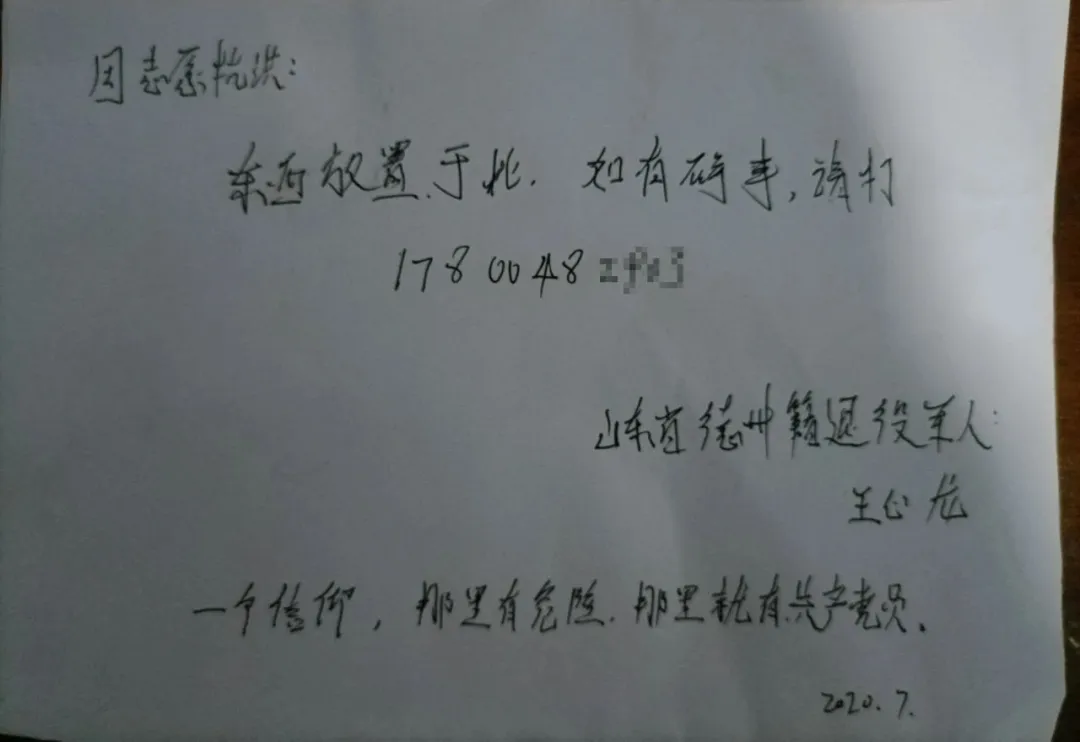 因志愿抗洪:
东西放置于此. 如有碍事,请打
1780048
山东省德州籍退役军人:
王正龙
一个信仰,那里有危险.那里就有共产党员.
2020.7.